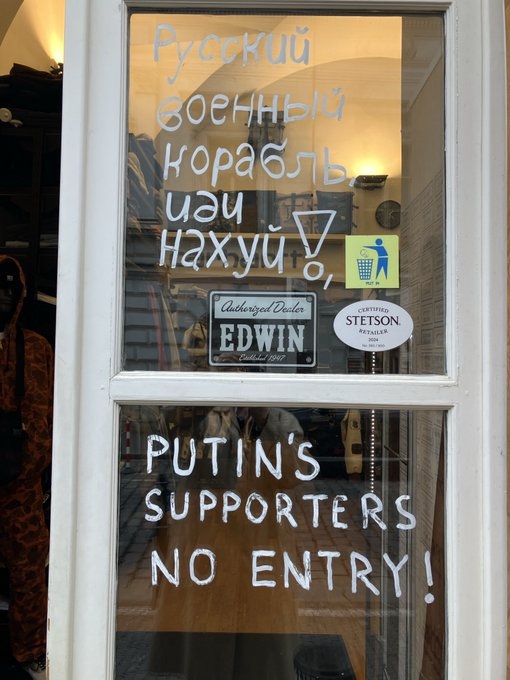 Русский
военный
корабль,
иди
нахуй!
PUT IN
Authorized Dealer
EDWIN
Established 1947
CERTIFIED
STETSON
RETAILER
2024
PUTIN'S
SUPPORTERS
NO ENTRY!